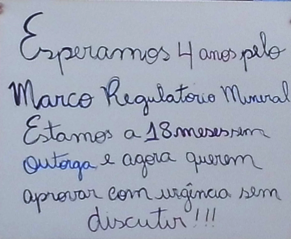 Esperamos 4 anos pelo
Marco Regulatorio Mineral
Estamos a 18 meses sem
outorga e agora querem
aprovar com urgência sem
discutir!!!